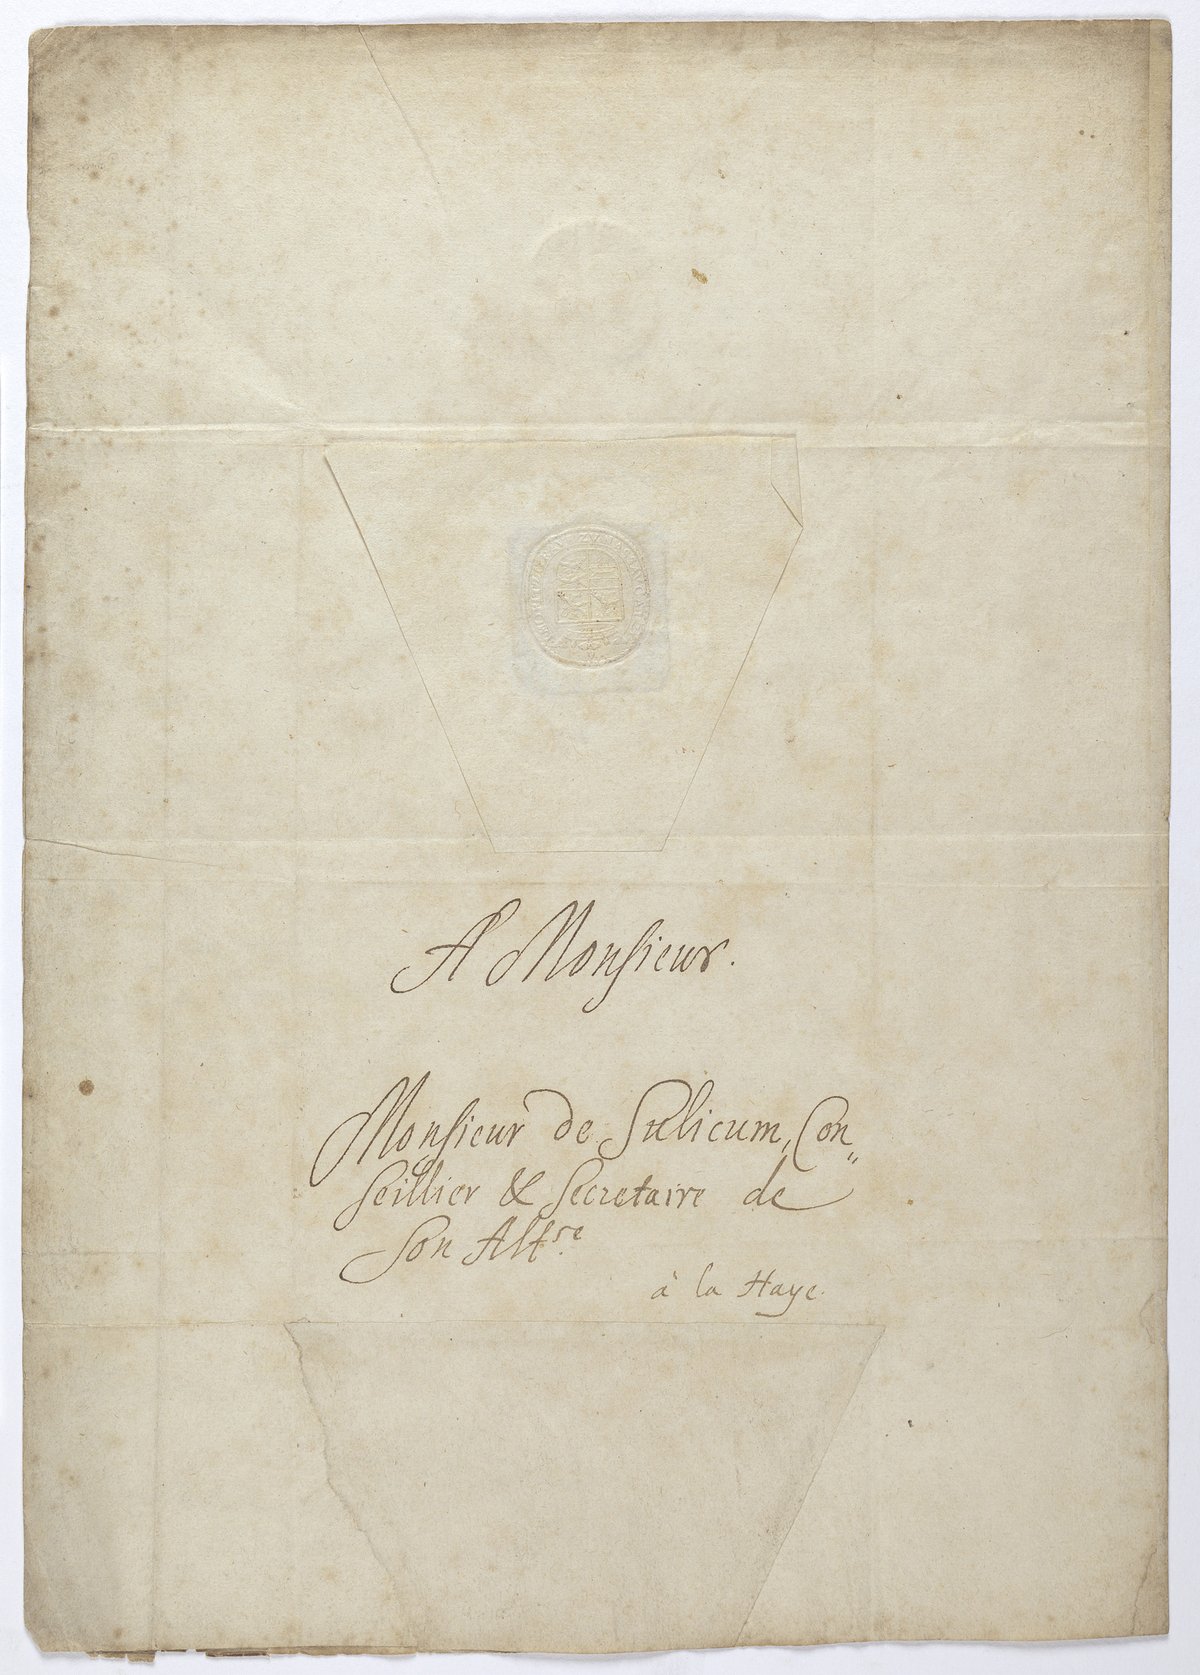 A Monsieur.
Monsieur de Sulicum, Con„
seillier & Secretaire de
Son Alt.se
à la Haye.